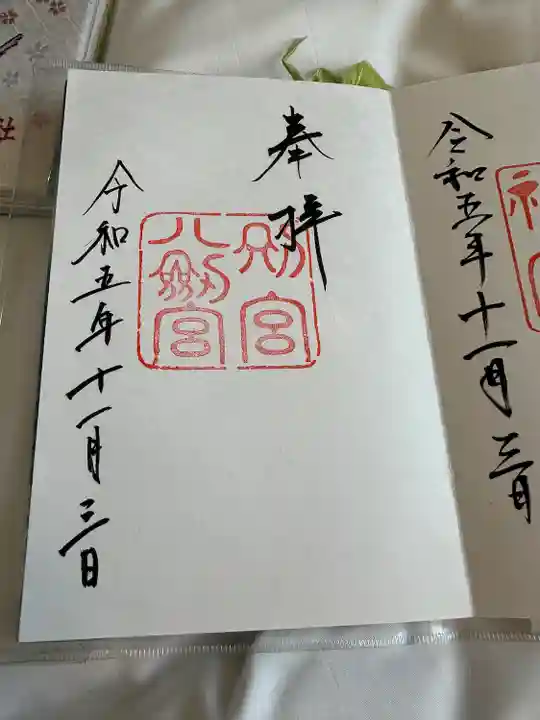 令和五年十一月三日
奉拝
別宮
八劔宮
令和五年十一月三日
社